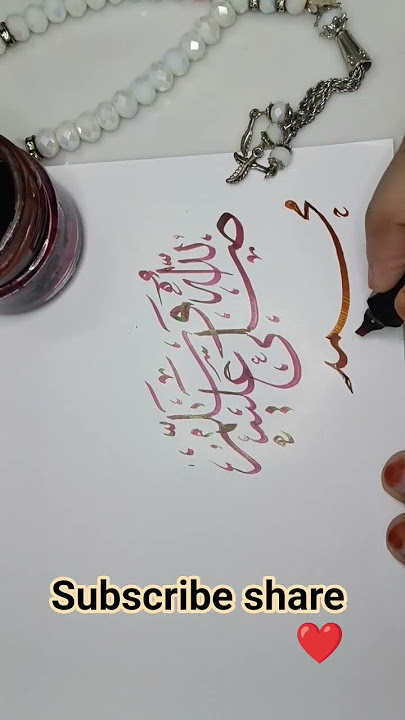 صلى الله عليه وسلم
Subscribe share